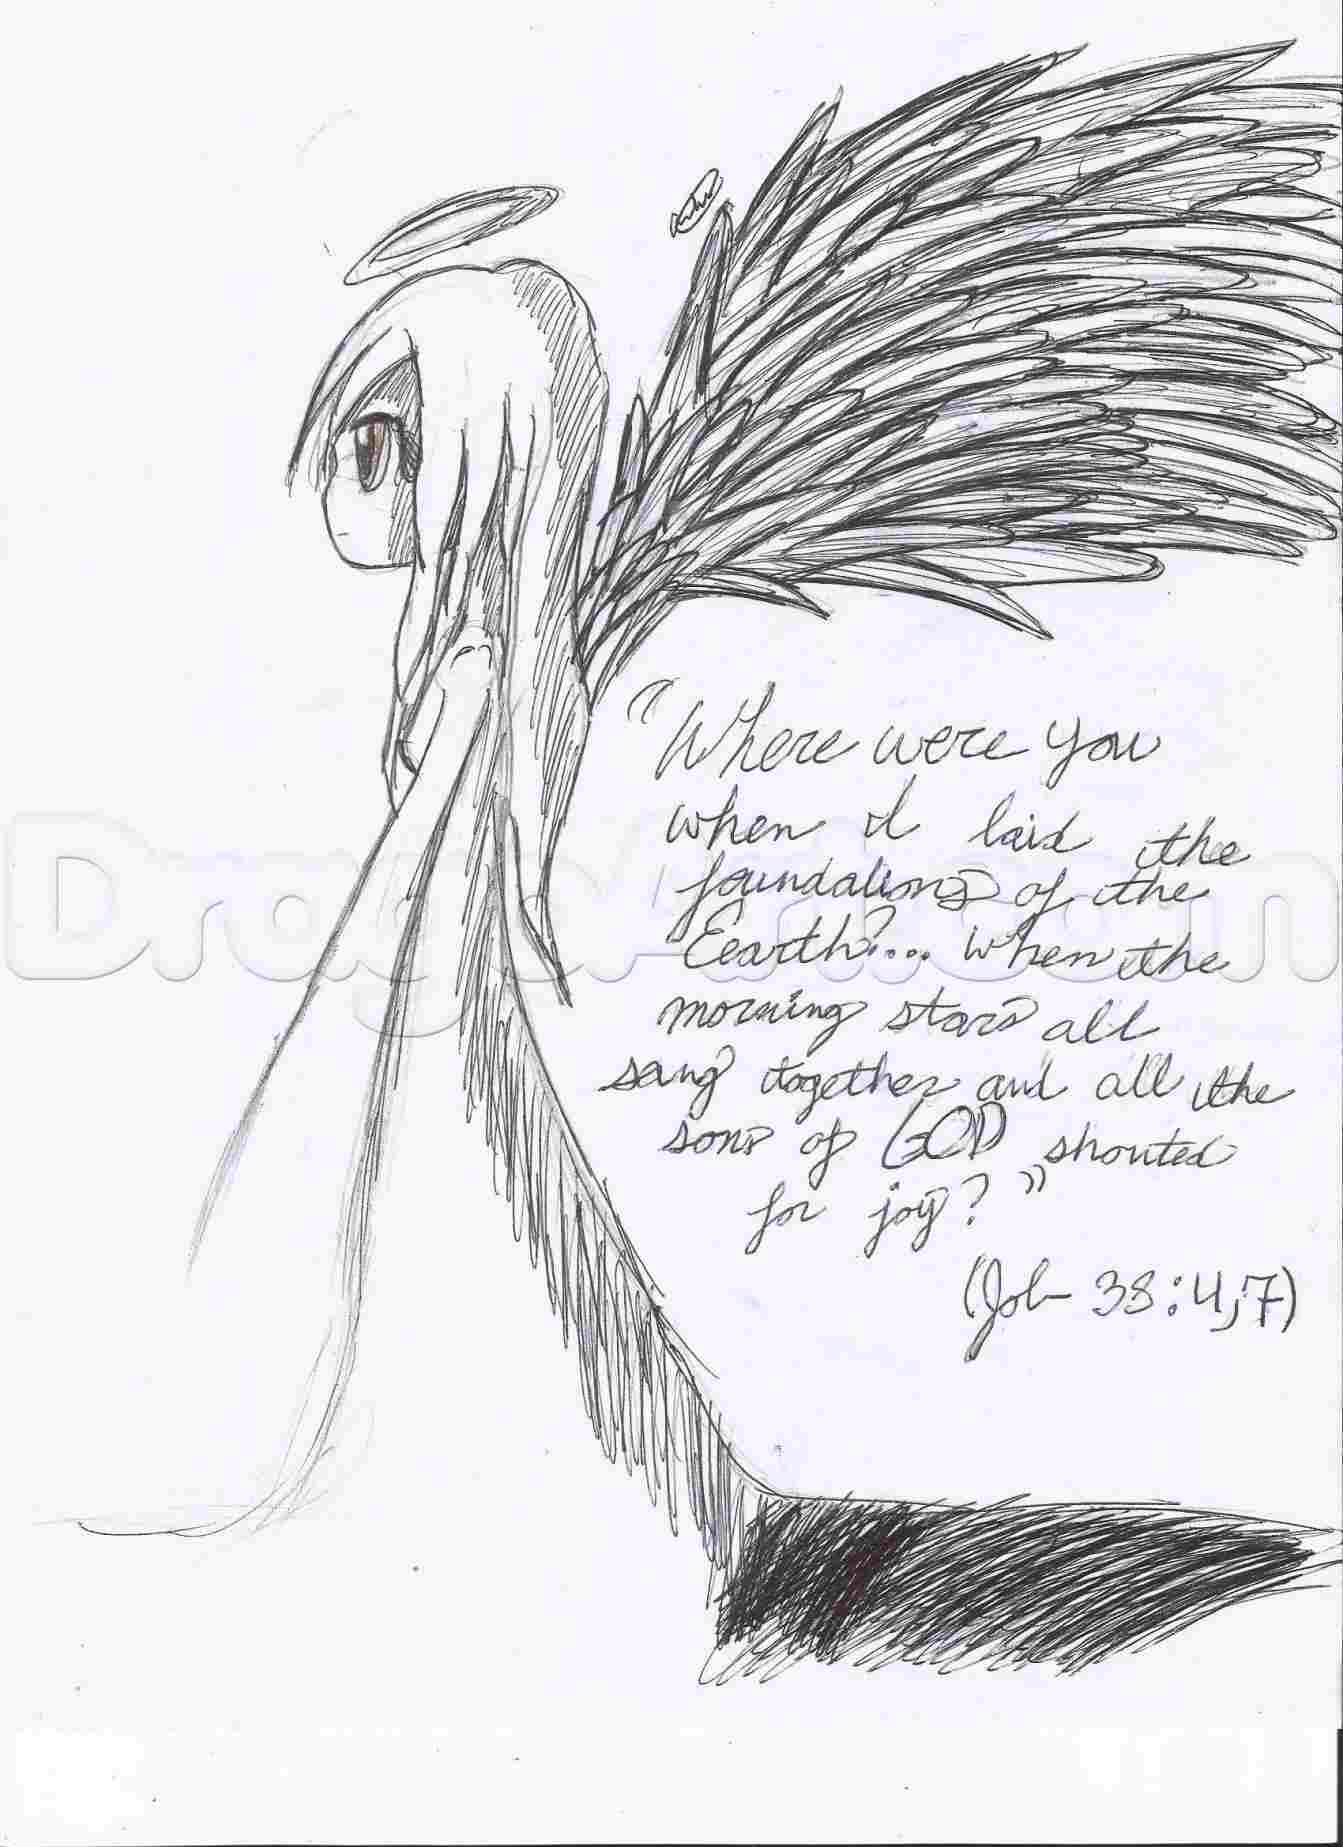 "Where were you
when I laid the
foundations of the
Eearth?... When the
morning stars all
sang together and all the
sons of GOD shouted
for joy?"
(Job 38:4,7)
DragoArt.com